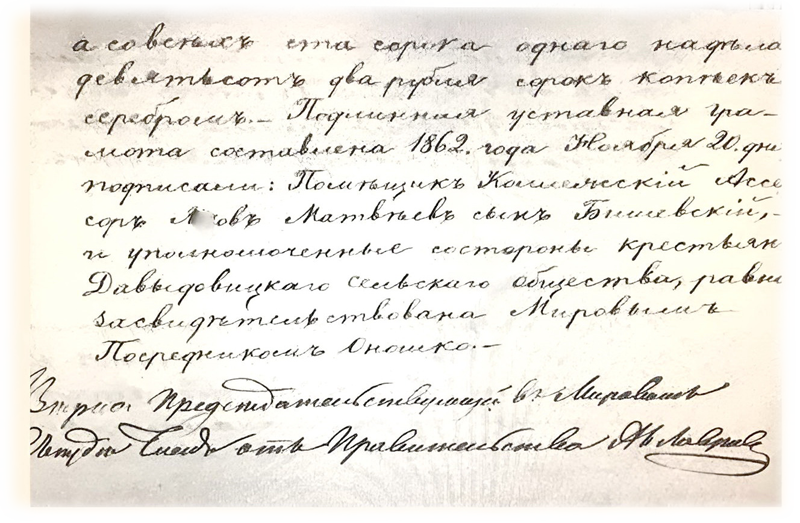 а совсѣхъ ста сорока однаго надѣла
девятьсотъ два рубля сорокъ копѣекъ
серебромъ.— Подлинная уставная гра-
мота составлена 1862. года Ноября 20. дня
подписали: Помѣщикъ Коллежскій Ассе
соръ Матвѣевъ сынъ Бишевскій,-
и уполномоченные состороны крестьян
Давыдовицкаго сельскаго общества, равно
засвидѣтельствована Мировымъ
Посредникомъ Оношко.—
Предсѣдательствующій въ Мировомъ
Членъ отъ Правительства